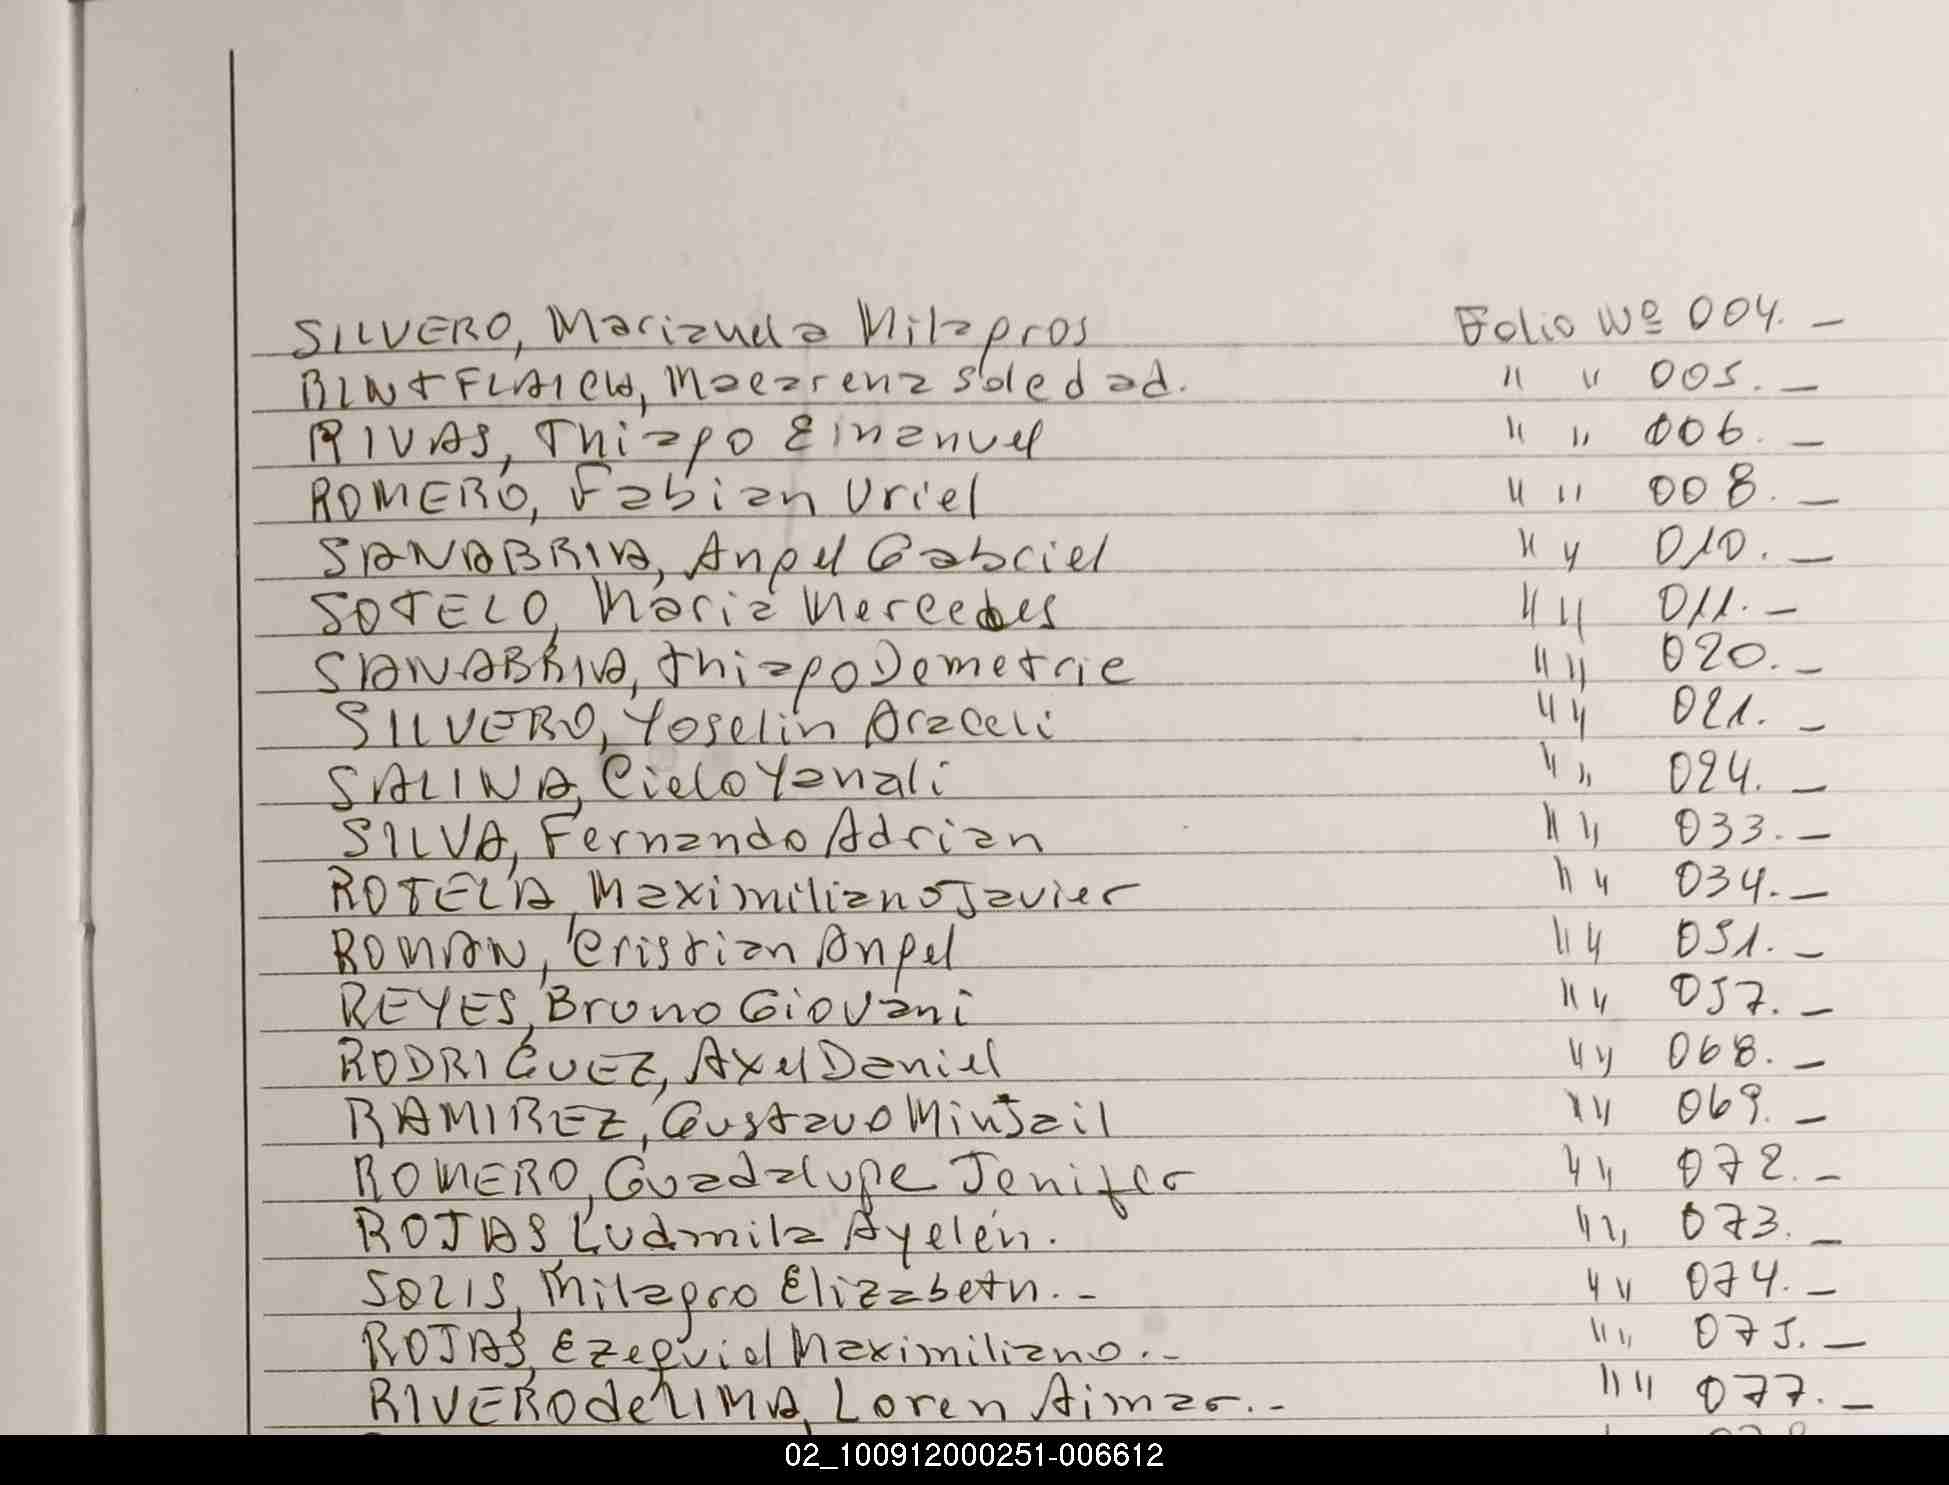 SILVERO, Marianela Milagros Folio Nº 004. —
RINTFLAICH, Macarena Soledad. " " 005. —
RIVAS, Thiago Emanuel " " 006. —
ROMERO, Fabian Uriel " " 008. —
SANABRIA, Angel Gabriel " " 010. —
SOTELO, Maria Mercedes " " 011. —
SANABRIA, Thiago Demetrie " " 020. —
SILVERO, Yoselin Araceli " " 021. —
SALINA, Cielo Yanali " " 024. —
SILVA, Fernando Adrian " " 033. —
ROTELA, Maximiliano Javier " " 034. —
ROMAN, Cristian Angel " " 051. —
REYES, Bruno Giovani " " 057. —
RODRIGUEZ, Axel Daniel " " 068. —
RAMIREZ, Gustavo " " 069. —
ROMERO, Guadalupe Jenifer " " 072. —
ROJAS Ludmila Ayelén. " " 073. —
SOLIS, Milagro Elizabeth. - " " 074. —
ROJAS, Ezequiel Maximiliano. - " " 075. —
RIVERO de LIMA, Loren Aimar. - " " 077. —
02_100912000251-006612